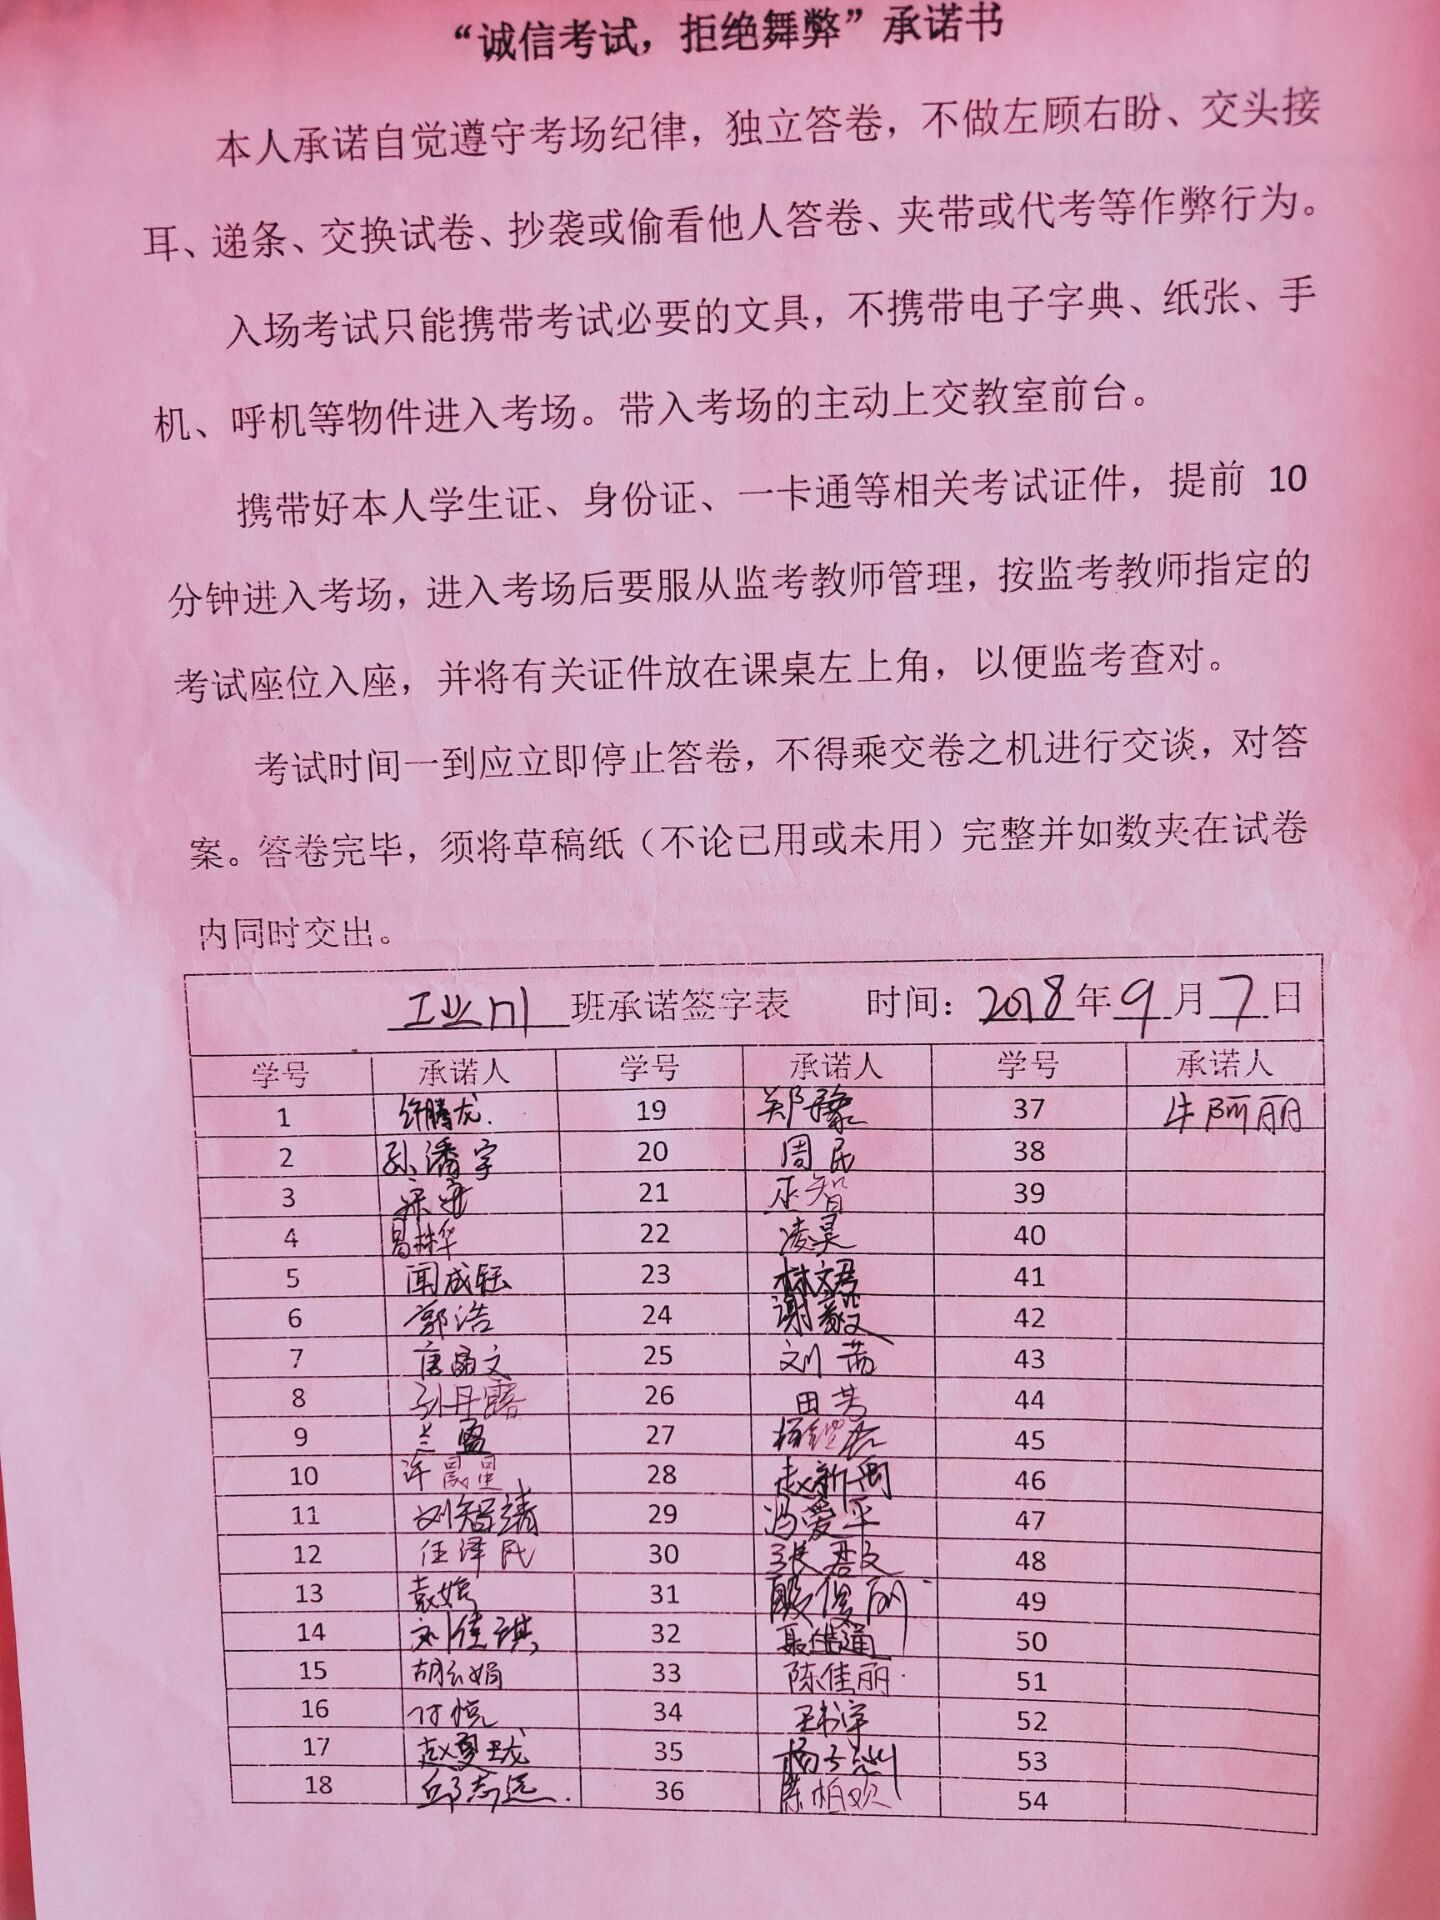 “诚信考试，拒绝舞弊”承诺书
本人承诺自觉遵守考场纪律，独立答卷，不做左顾右盼、交头接
耳、递条、交换试卷、抄袭或偷看他人答卷、夹带或代考等作弊行为。
入场考试只能携带考试必要的文具，不携带电子字典、纸张、手
机、呼机等物件进入考场。带入考场的主动上交教室前台。
携带好本人学生证、身份证、一卡通等相关考试证件，提前 10
分钟进入考场，进入考场后要服从监考教师管理，按监考教师指定的
考试座位入座，并将有关证件放在课桌左上角，以便监考查对。
考试时间一到应立即停止答卷，不得乘交卷之机进行交谈，对答
案。答卷完毕，须将草稿纸（不论已用或未用）完整并如数夹在试卷
内同时交出。
工业 班承诺签字表 时间：2018年9月7日
学号 承诺人 学号 承诺人 学号 承诺人
1 许腾龙 19 郑豫 37 牛阿丽
2 孙潘宇 20 周民 38
3 21 巫智 39
4 易林华 22 凌昊 40
5 闻成钰 23 林文君 41
6 郭浩 24 谢毅 42
7 唐晶文 25 刘茜 43
8 孙丹露 26 田芳 44
9 兰盈 27 45
10 许晨星 28 赵新雨 46
11 刘智靖 29 冯爱平 47
12 任泽民 30 张君文 48
13 袁婷 31 殷俊丽 49
14 刘佳琪 32 50
15 胡云娟 33 陈佳丽 51
16 付悦 34 王书宇 52
17 赵夏珑 35 53
18 邱志远 36 陈柏欢 54